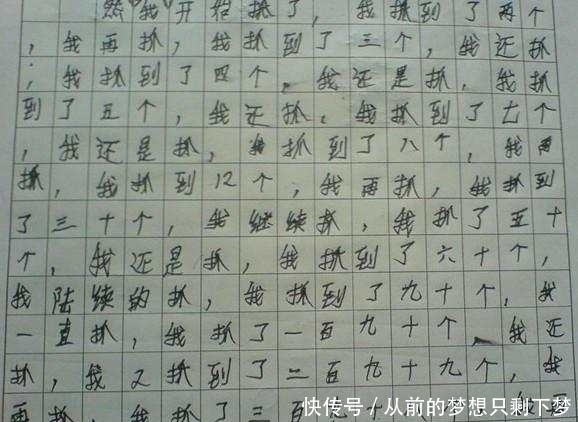 然"我"开始抓了，我抓到了两个
，我再抓，我抓到了三个，我还抓
，我抓到了四个，我还是抓，我抓
到了五个，我还抓，我抓到了七个
，我还是抓，我抓到了八个，我再
抓，我抓到12个，我再抓，我抓到
了三十个，我继续抓，我抓了五十
个，我还是抓，我抓到了六十个，
我陆续的抓，我抓到了九十个，我
一直抓，我抓了一百九十个，我还
抓，我又抓到了二百九十九个，我
再抓，我抓了三百九十
快传号/从前的梦想只剩下梦